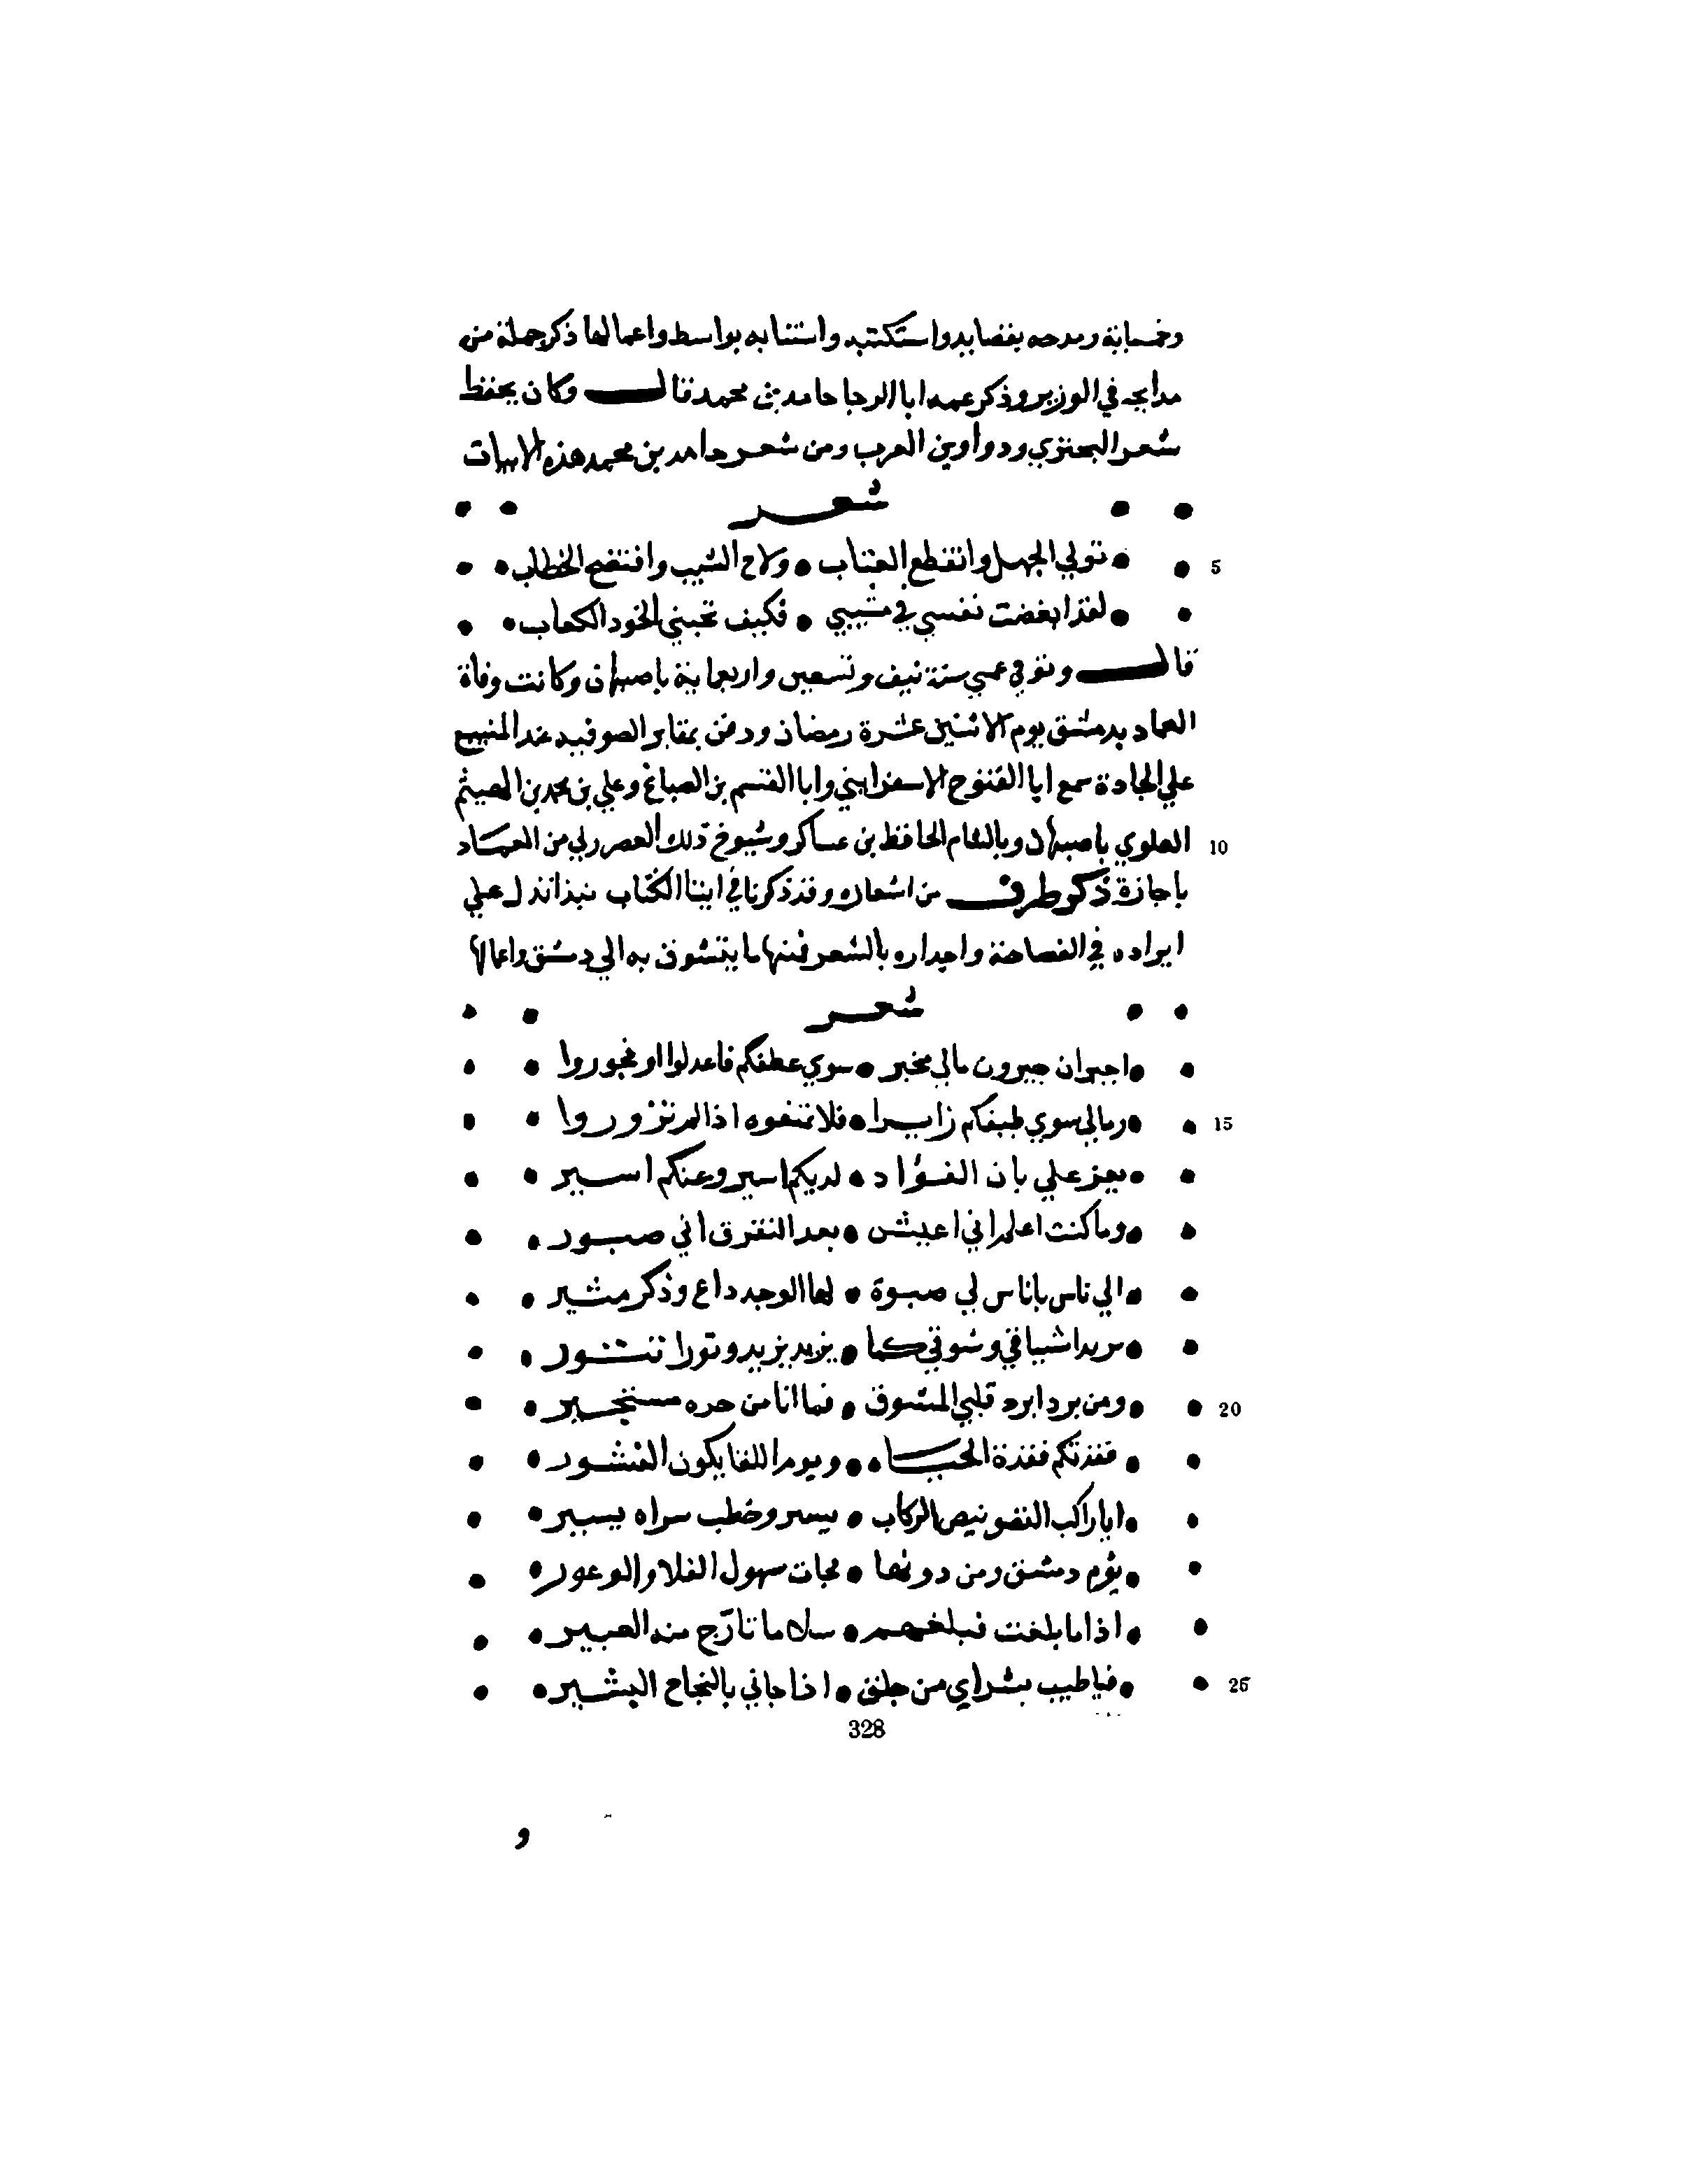 وخمسماية ومدحه بقصايد واستكتبه واستنابه بواسط واعمالها ذكر جملة من
مدايحه في الوزير وذكر عمه ابا الرجا حامد بن محمد قال وكان يحفظ
شعر البحتري ودواوين العرب ومن شعر حامد بن محمد هذه الابيات
شعر
5 تولي الجهل وانقطع العتاب • ولاح الشيب وافتضح الخطاب
لقد ابغضت نفسي في مشيبي • فكيف تحبني الخود الكعاب
قال وتوفي عمي سنة نيف وتسعين واربعماية باصبهان وكانت وفاة
العماد بدمشق يوم الاثنين عشرة رمضان ودفن بمقابر الصوفيه عند المنيبع
علي الجادة سمع ابا الفتوح الاسفراييني وابا القسم بن الصباغ وعلي بن محمد بن الهيثم
10 العلوي باصبهان وبالشام الحافظ بن عساكر وشيوخ ذلك العصر ولي من العماد
باجازة ذكر طرف من اشعاره وقد ذكرنا في اثنا الكتاب نبذا تدل علي
ايراده في الفصاحة واصداره بالشعر فمنها ما يتشوق به الي دمشق واعمالها
شعر
اجيران جيرون مالي مجير • سوي عطفكم فاعدلوا او فجوروا
15 ومالي سوي طيفكم زايرا • فلا تمنعوه اذا لم تزوروا
يعز علي بان الفؤاد • لديكم اسير وعنكم اسير
وما كنت اعلم اني اعيش • بعد التفرق اني صبور
الي ناس باناس لي صبوة • لها الوجد داع وذكر مثير
يزيد اشتياقي وشوقي كما • يزيد يزيد وثورا تثور
20 ومن بردا برد قلبي المشوق • فما انا من حره مستجير
فقدتكم فقدت الحياه • ويوم اللقا يكون النشور
ايا راكب النضو ينضي الركاب • يسير وخطب سراه يسير
يؤم دمشق ومن دونها • تجاب سهول الفلا والوعور
اذا ما بلغت فبلغهم • سلاما تأرج منه العبير
25 فيا طيب بشراي من جلق • اذا جاني بالنجاح البشير
328
و